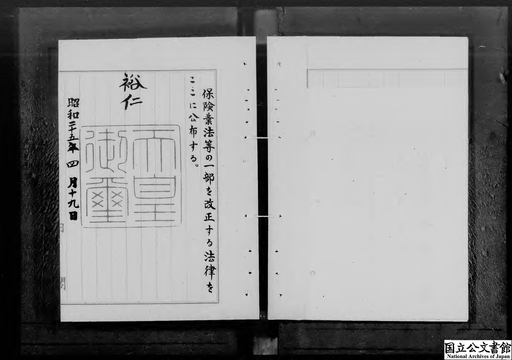 保険業法等の一部を改正する法律を
ここに公布する。
裕仁
天皇
御璽
昭和二十五年四月十九日
国立公文書館
National Archives of Japan